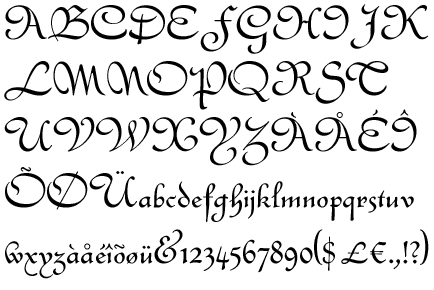 ABCDEFGHIJK
LMNOPQRST
UVWXYZÀÅÉÎ
ÕØÜabcdefghijklmnopqrstuv
wxyzàåéîõøü&1234567890($ £ €.,!?)